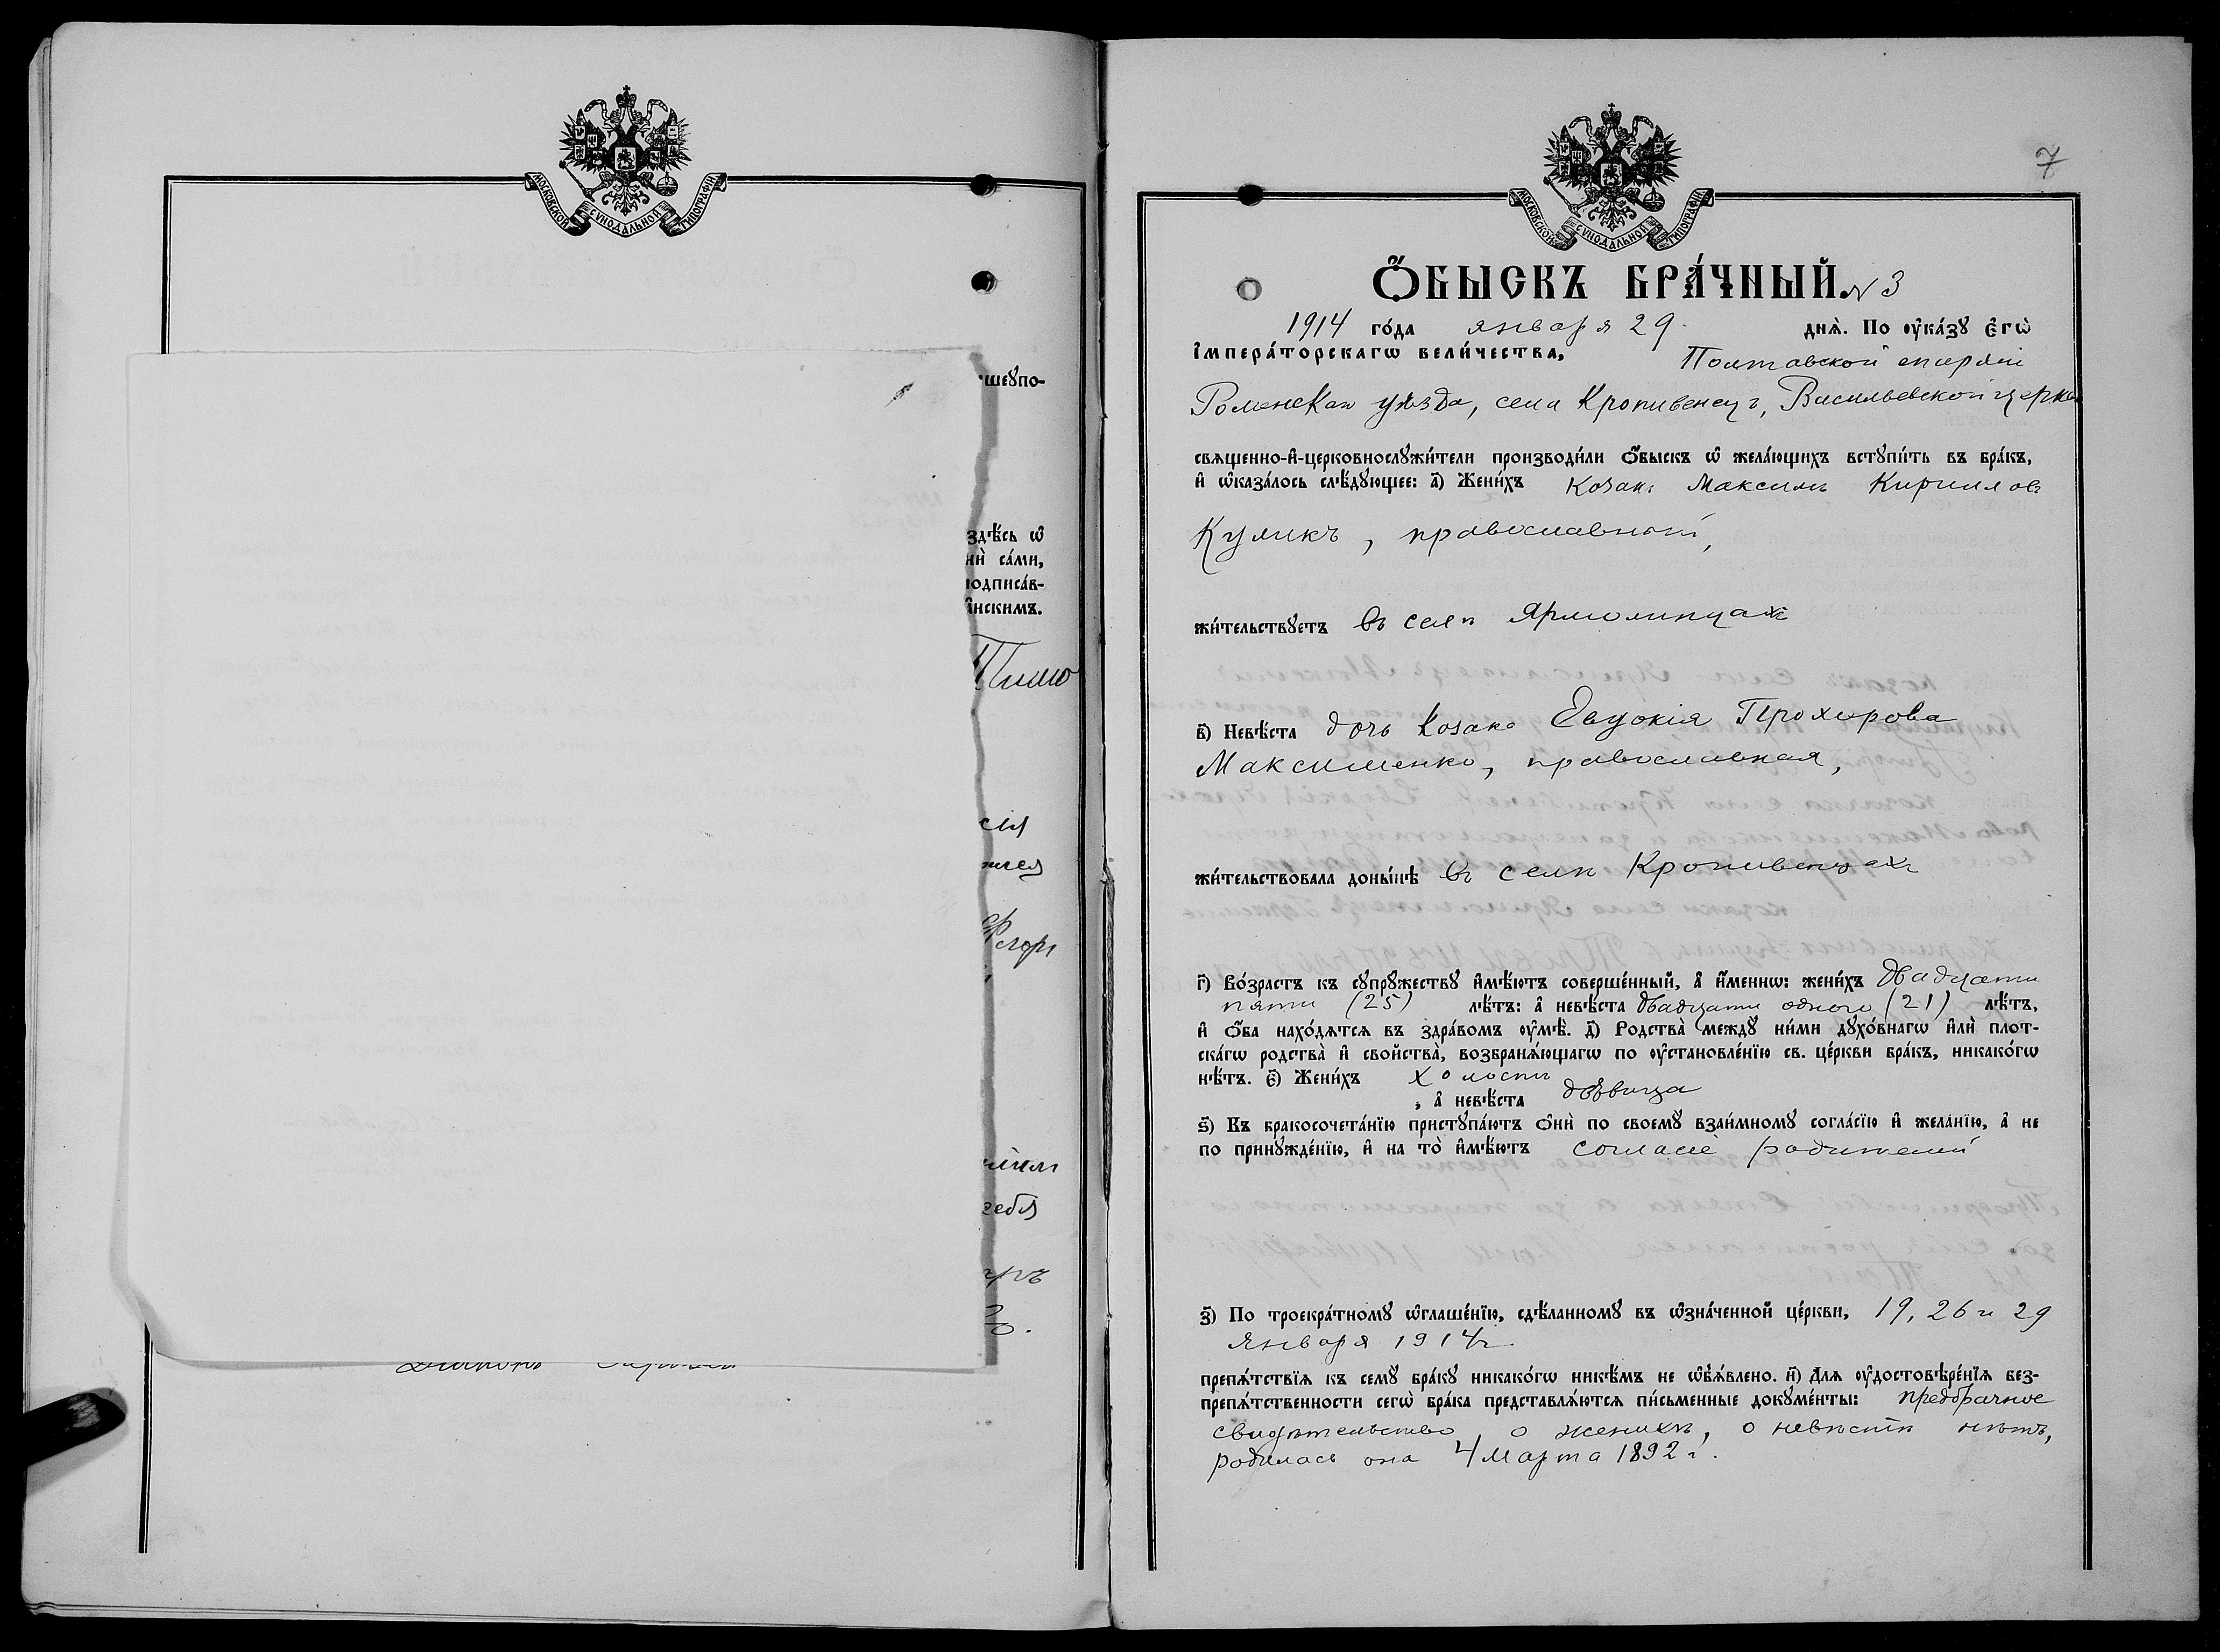 МОСКОВСКОЙ СѴНОДАЛЬНОЙ ТИПОГРАФІИ
шеꙋпо-
здѣ́сь ѡ҆
нѝ са́ми,
подписа́в-
и҆нскимъ.
ебя
МОСКОВСКОЙ СѴНОДАЛЬНОЙ ТИПОГРАФІИ
7
Ѻ҆́БЫСКЪ БРА́ЧНЫЙ. N 3
1914 го́да января 29. днѧ̀. По ᲂу҆ка́зꙋ є҆гѡ̀
і҆мпера́торскагѡ вели́чества, Полтавской епархіи
Роменскаго уѣзда, села Кропивенецъ, Васильевской церкви
свѧщенно-и҆-церковнослꙋжи́тели производи́ли ѻ҆́быскъ ѡ҆ жела́ющихъ встꙋпи́ть въ бра́къ,
и҆ ѡ҆каза́лось слѣ́дꙋющее: а҃) Жени́хъ козакъ Максимъ Кирилловъ
Куликъ, православный,
жи́тельствꙋетъ въ селѣ Ярмолинцахъ
в҃) Невѣ́ста дочь козака Евдокія Прохирова
Максименко, православная,
жи́тельствовала доны́нѣ въ селѣ Кропивенцахъ
г҃) Во́зрастъ къ сꙋпрꙋ́жествꙋ и҆мѣ́ютъ соверше́нный, а҆ и҆́менно: жени́хъ двадцати
пяти (25) лѣ́тъ: а҆ невѣ́ста двадцати одного (21) лѣ́тъ,
и҆ ѻ҆́ба нахо́дѧтсѧ въ здра́вомъ ᲂу҆мѣ̀. д҃) Родства̀ междꙋ̀ ни́ми дꙋхо́внагѡ и҆лѝ плот-
ска́гѡ родства̀ и҆ свойства̀, возбранѧ́ющагѡ по ᲂу҆становле́нїю св. це́ркви бра́къ, никако́гѡ
нѣ́тъ. є҃) Жени́хъ холостъ
, а҆ невѣ́ста дѣвица
ѕ҃) Къ бракосочета́нїю пристꙋпа́ютъ ѻ҆нѝ по своемꙋ̀ взаи́мномꙋ согла́сїю и҆ жела́нїю, а҆ не
по принꙋжде́нїю, и҆ на то̀ и҆мѣ́ютъ согласіе родителей
з҃) По троекра́тномꙋ ѡ҆глаше́нїю, сдѣ́ланномꙋ въ ѡ҆зна́ченной це́ркви, 19, 26 и 29
января 1914 г.
препѧ́тствїѧ къ семꙋ̀ бра́кꙋ никако́гѡ никѣ́мъ не ѡ҆б̾ѧ́влено. и҃) Длѧ ᲂу҆достовѣре́нїѧ без-
препѧ́тственности сегѡ̀ бра́ка представлѧ́ютсѧ пи́сьменные докꙋме́нты: предбрачное
свидѣтельство о женихѣ, о невѣстѣ нѣтъ,
родилась она 4 Марта 1892 г.